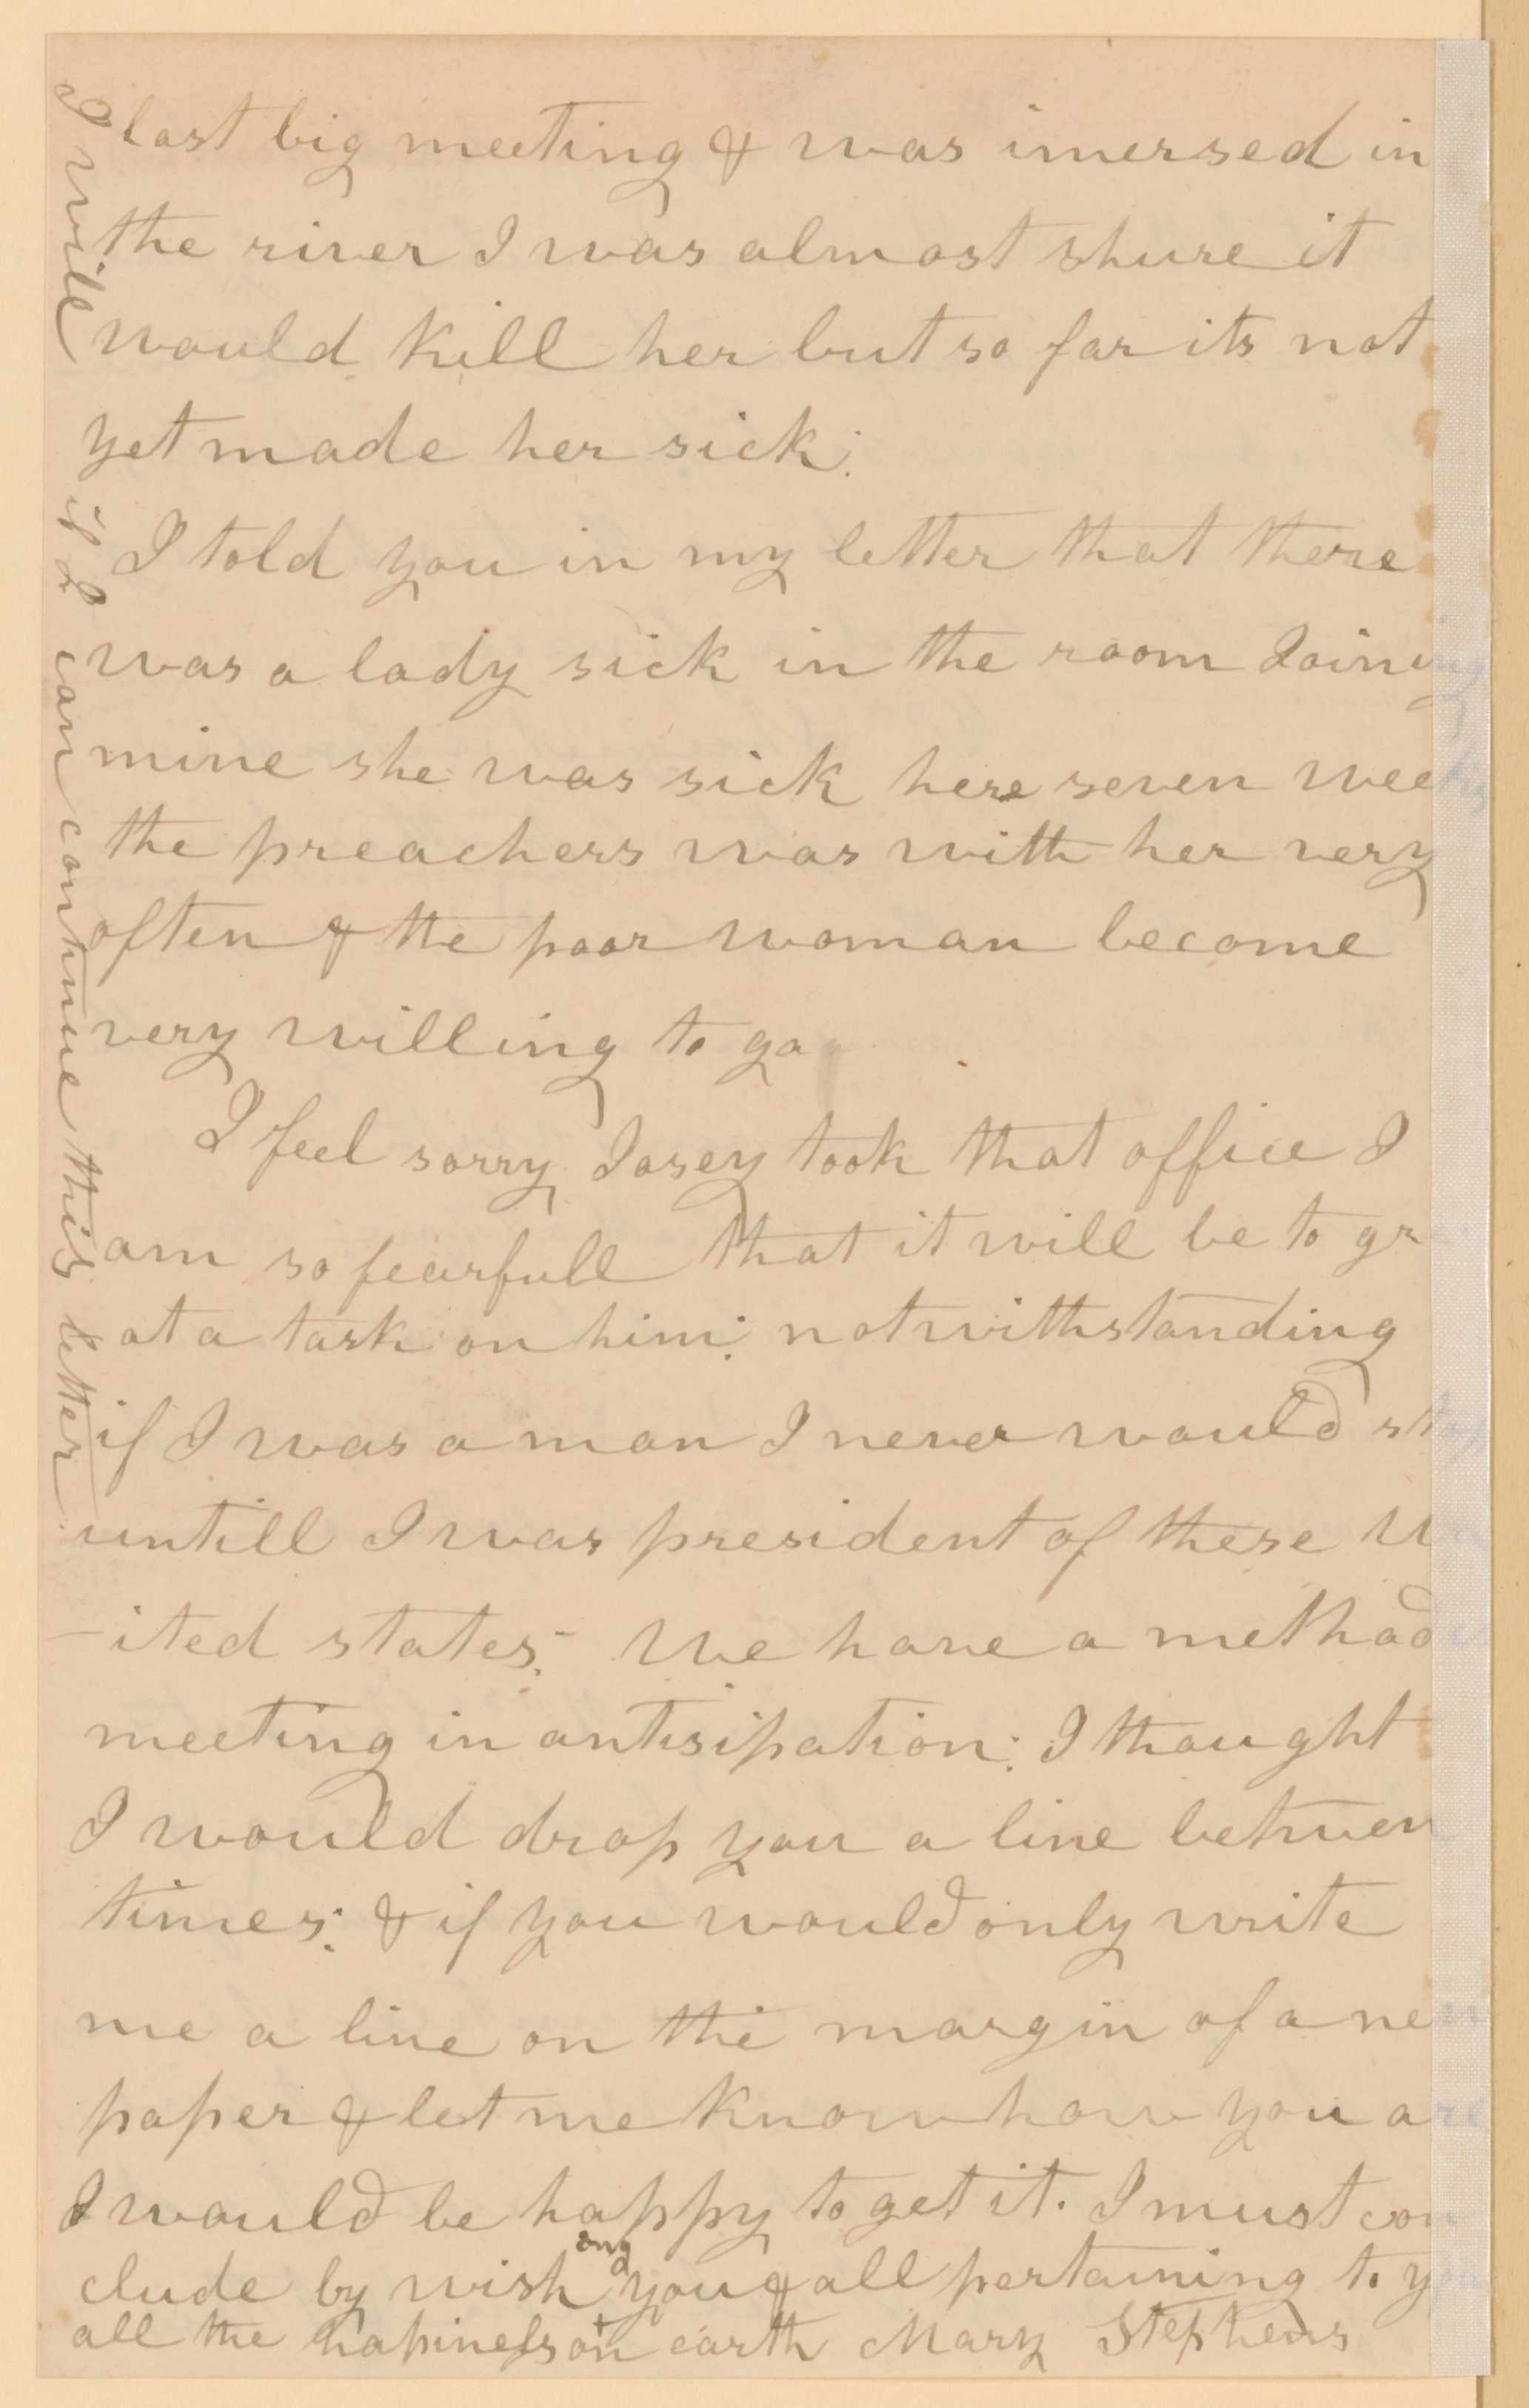 last big meeting & was imersed in
the river I was almost shure it
would kill her but so far its not
yet made her sick.
I told you in my letter that there
was a lady sick in the room Joining
mine she was sick here seven weeks
the preachers was with her very
often & the poor woman become
very willing to go
I feel sorry Josey took that office I
am so fearfull that it will be to gr
at a task on him: notwithstanding
if I was a man I never would stop
untill I was president of these Un
-ited states: We have a methodist
meeting in antisipation: I thought
I would drop you a line between
times: & if you would only write
me a line on the margin of a news
paper & let me know how you are
I would be happy to get it. I must con
clude by wish you & all pertaining to you
all the hapiness on earth Mary Stephens
I will if I can continue this letter